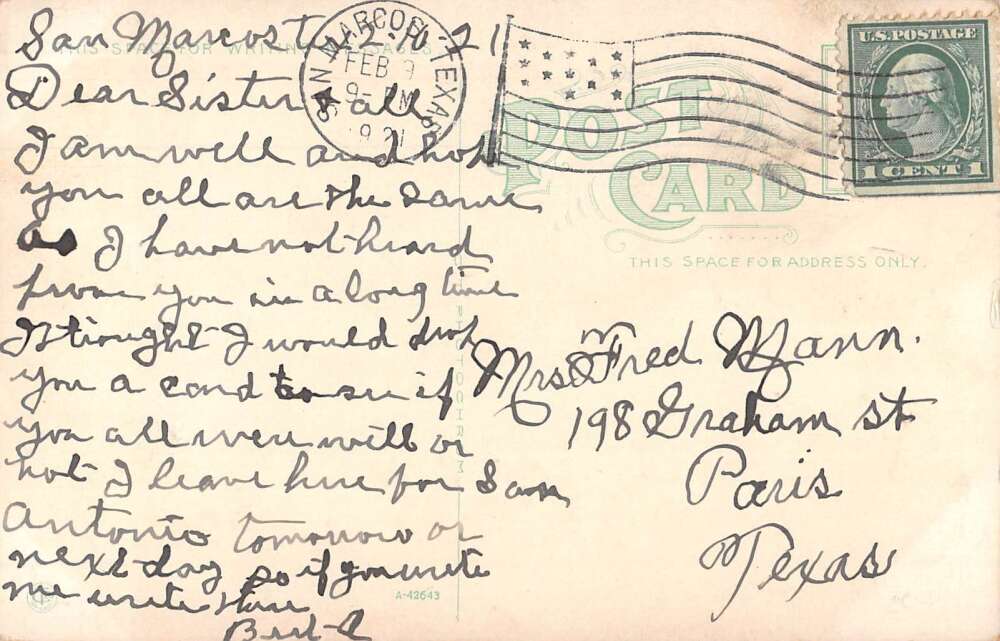 San Marcos T 2-10 21
THIS SPACE FOR WRITING MESSAGES
Dear Sister & all
I am well and hop
you all are the same
as I have not heard
from you in a long time
I thought I would drop
you a card to see if
you all were well or
not I leave here for San
Antonio tomorrow or
next day so if you write
me write there
Bert
A-42643
SAN MARCOS TEXAS
FEB 9
9- PM
1921
U.S. POSTAGE
1 CENT 1
POST
CARD
THIS SPACE FOR ADDRESS ONLY.
Mrs Fred Mann.
198 Graham st
Paris
Texas